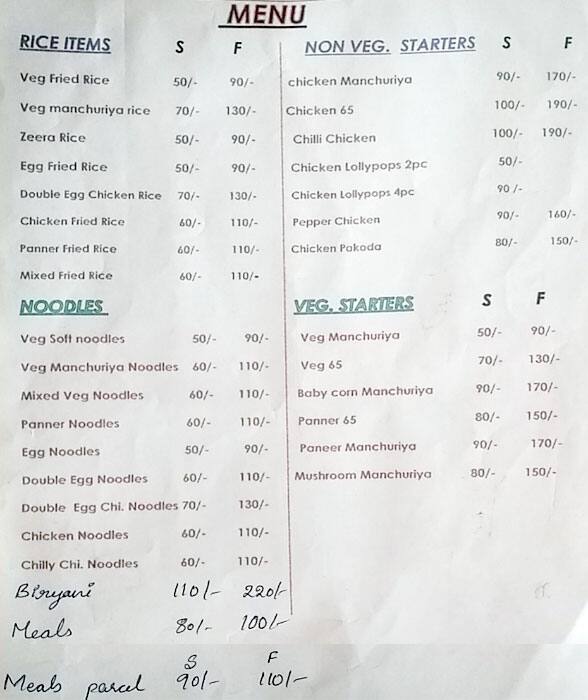 MENU
RICE ITEMS S F
Veg Fried Rice 50/- 90/-
Veg manchuriya rice 70/- 130/-
Zeera Rice 50/- 90/-
Egg Fried Rice 50/- 90/-
Double Egg Chicken Rice 70/- 130/-
Chicken Fried Rice 60/- 110/-
Panner Fried Rice 60/- 110/-
Mixed Fried Rice 60/- 110/-
NOODLES
Veg Soft noodles 50/- 90/-
Veg Manchuriya Noodles 60/- 110/-
Mixed Veg Noodles 60/- 110/-
Panner Noodles 60/- 110/-
Egg Noodles 50/- 90/-
Double Egg Noodles 60/- 110/-
Double Egg Chi. Noodles 70/- 130/-
Chicken Noodles 60/- 110/-
Chilly Chi. Noodles 60/- 110/-
Biryani 110/- 220/-
Meals 80/- 100/-
S F
Meals parcel 90/- 110/-
NON VEG. STARTERS S F
chicken Manchuriya 90/- 170/-
Chicken 65 100/- 190/-
Chilli Chicken 100/- 190/-
Chicken Lollypops 2pc 50/-
Chicken Lollypops 4pc 90/-
Pepper Chicken 90/- 160/-
Chicken Pakoda 80/- 150/-
VEG. STARTERS S F
Veg Manchuriya 50/- 90/-
Veg 65 70/- 130/-
Baby corn Manchuriya 90/- 170/-
Panner 65 80/- 150/-
Paneer Manchuriya 90/- 170/-
Mushroom Manchuriya 80/- 150/-